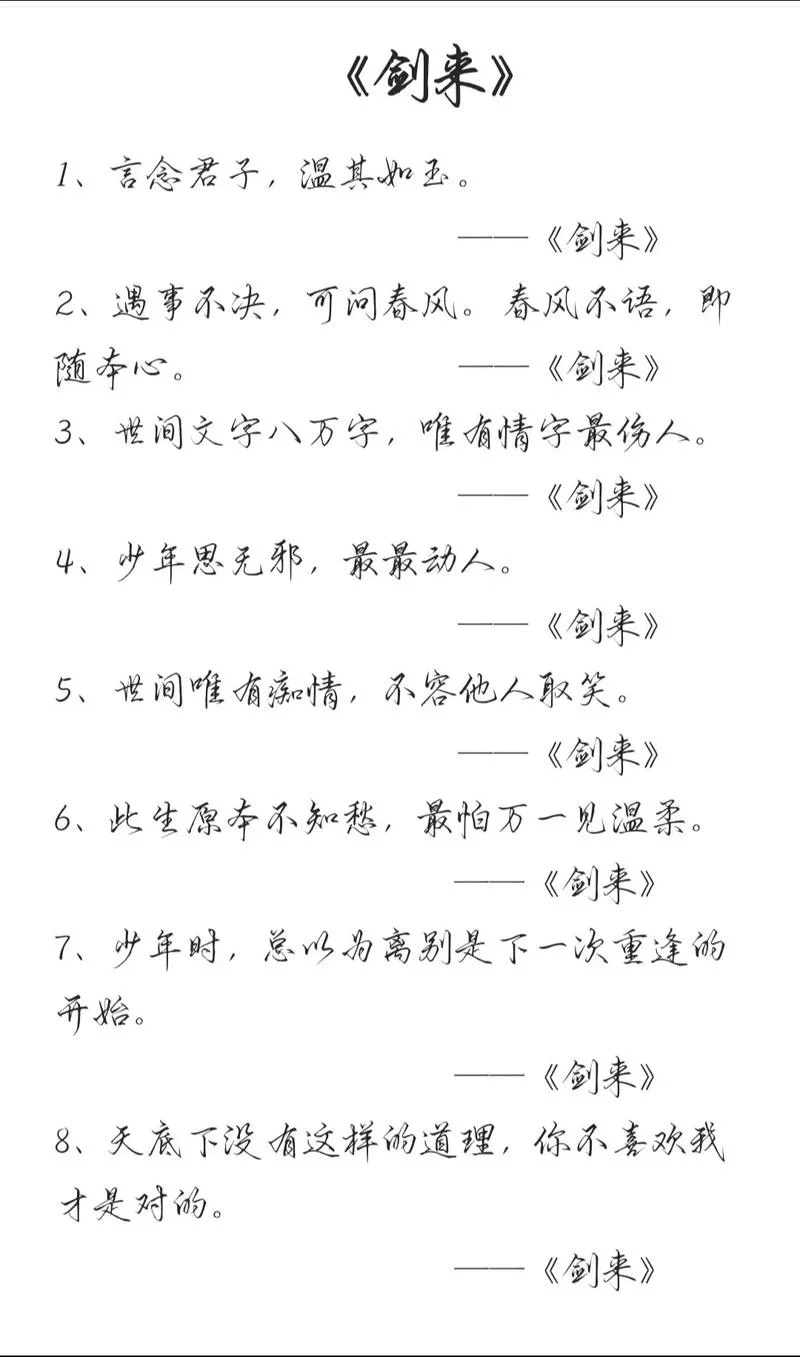 《剑来》
1、言念君子，温其如玉。
——《剑来》
2、遇事不决，可问春风。春风不语，即
随本心。 ——《剑来》
3、世间文字八万字，唯有情字最伤人。
——《剑来》
4、少年思无邪，最最动人。
——《剑来》
5、世间唯有痴情，不容他人取笑。
——《剑来》
6、此生原本不知愁，最怕万一见温柔。
——《剑来》
7、少年时，总以为离别是下一次重逢的
开始。
——《剑来》
8、天底下没有这样的道理，你不喜欢我
才是对的。
——《剑来》